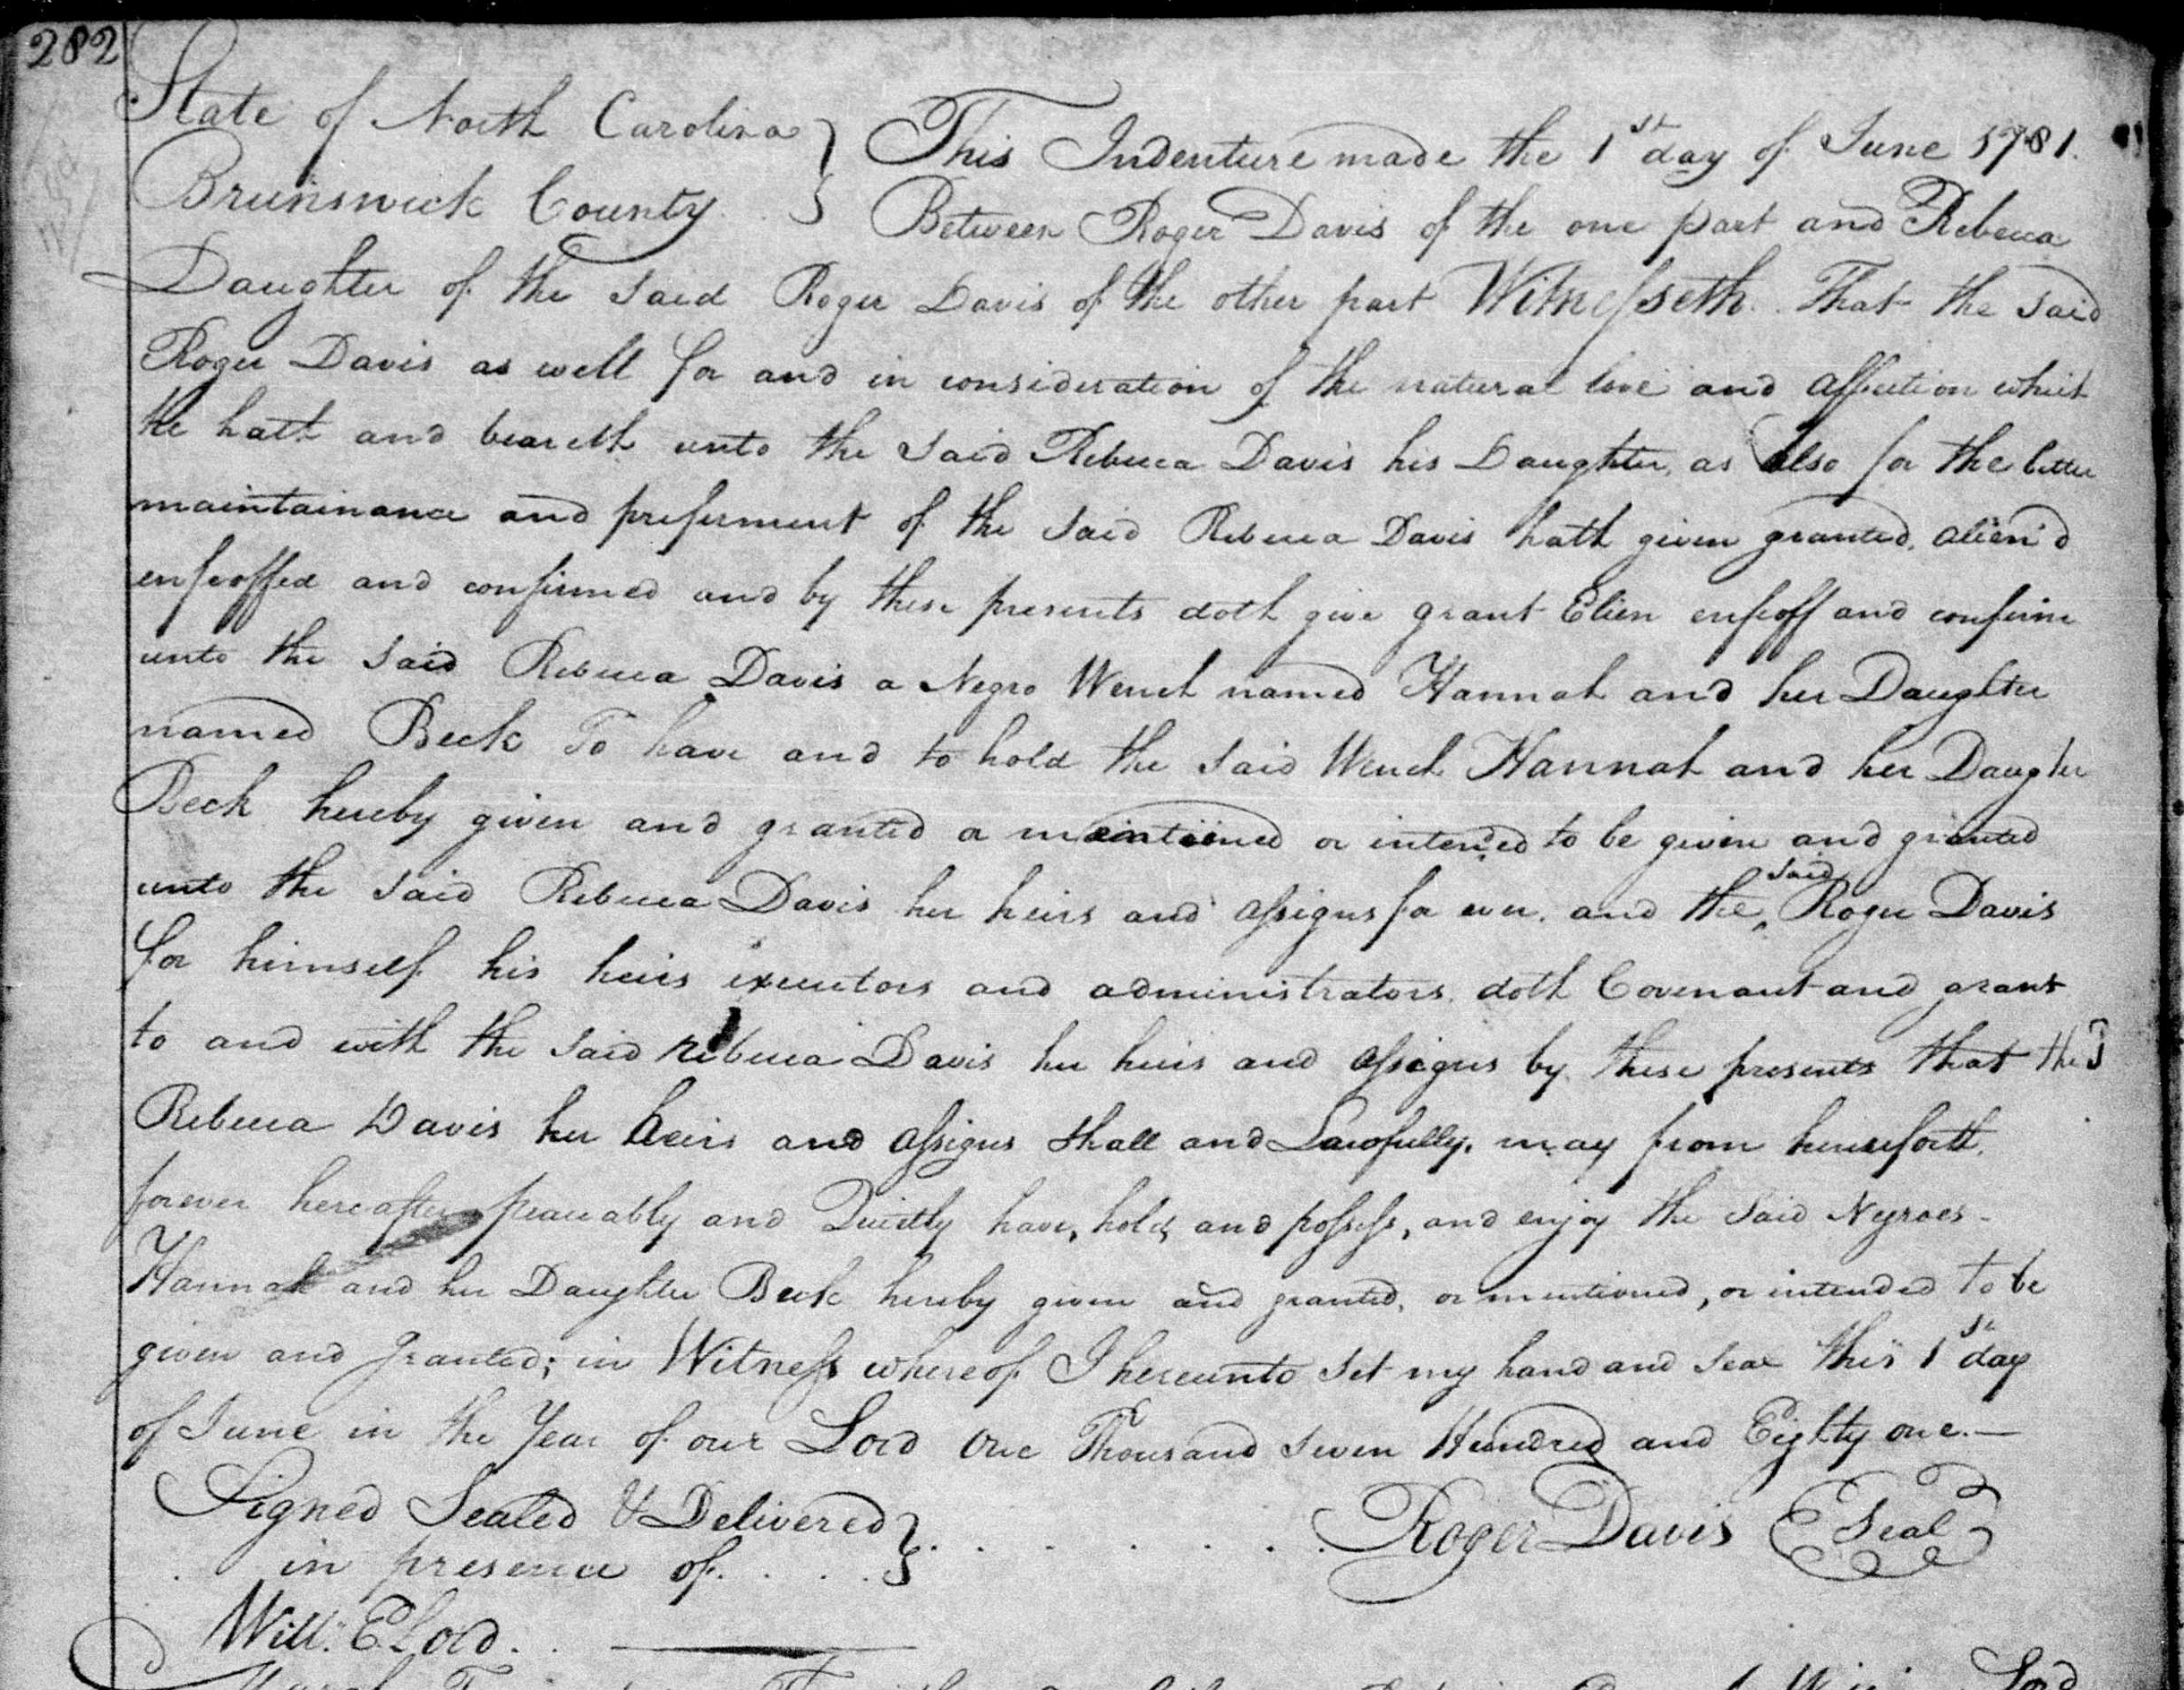 282
State of North Carolina } This Indenture made the 1st day of June 1781.
Brunswick County. . } Between Roger Davis of the one part and Rebecca
Daughter of the said Roger Davis of the other part Witnesseth. That the said
Roger Davis as well for and in consideration of the natural love and affection which
He hath and beareth unto the said Rebecca Davis his Daughter, as also for the better
maintainance and preferment of the said Rebecca Davis hath given granted, alien'd
enfeoffed and confirmed and by these presents doth give grant Elien enfeoff and confirm
unto the said Rebecca Davis a Negro Wench named Hannah and her Daughter
named Beck To have and to hold the said Wench Hannah and her Daughter
Beck hereby given and granted or mentioned or intended to be given and granted
unto the said Rebecca Davis her heirs and assigns for ever. and the said Roger Davis
for himself his heirs executors and administrators, doth Covenant and grant
to and with the said Rebecca Davis her heirs and assigns by these presents that the
Rebecca Davis her heirs and assigns shall and Lawfully, may from henceforth,
forever hereafter peaceably and Quietly have, hold, and possess, and enjoy the said Negroes -
Hannah and her Daughter Beck hereby given and granted, or mentioned, or intended to be
given and granted; in Witness whereof I hereunto set my hand and seal this 1st day
of June in the Year of our Lord One Thousand seven Hundred and Eighty one. —
Signed Sealed & Delivered } . . . . . . . Roger Davis Seal
in presence of . . . . }
Will: E Lord. .
Lord